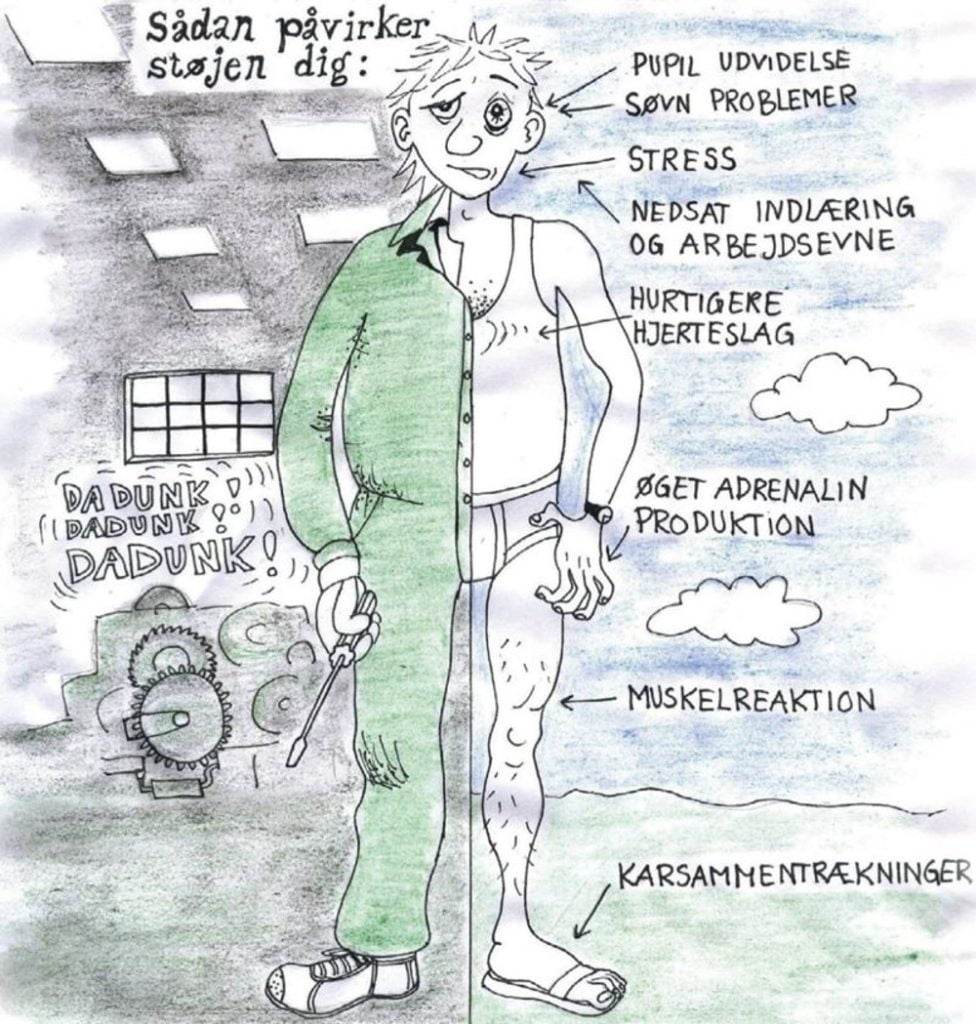 Sådan påvirker
støjen dig:
PUPIL UDVIDELSE
SØVN PROBLEMER
STRESS
NEDSAT INDLÆRING
OG ARBEJDSEVNE
HURTIGERE
HJERTESLAG
DADUNK!
DADUNK!
DADUNK!
ØGET ADRENALIN
PRODUKTION
MUSKELREAKTION
KARSAMMENTRÆKNINGER